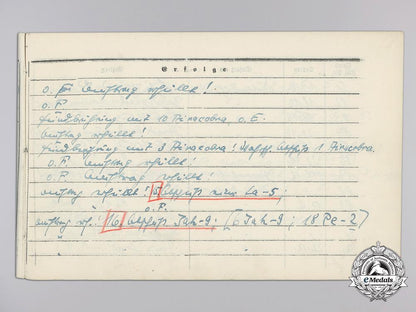 Erfolge
o. F. Auftrag erfüllt!
o. F.
Feindberührung mit 10 Airacobra, o. E.
Auftrag erfüllt!
Feindberührung mit 8 Airacobra! Abschuß 1 Airacobra.
o. F. Auftrag erfüllt!
o. F. Auftrag erfüllt!
Auftrag erfüllt! Abschuß einer La-5;
F.
Auftrag erf.! Abschuß Jak-9; Jak-9; 18 Pe-2)
eMedals